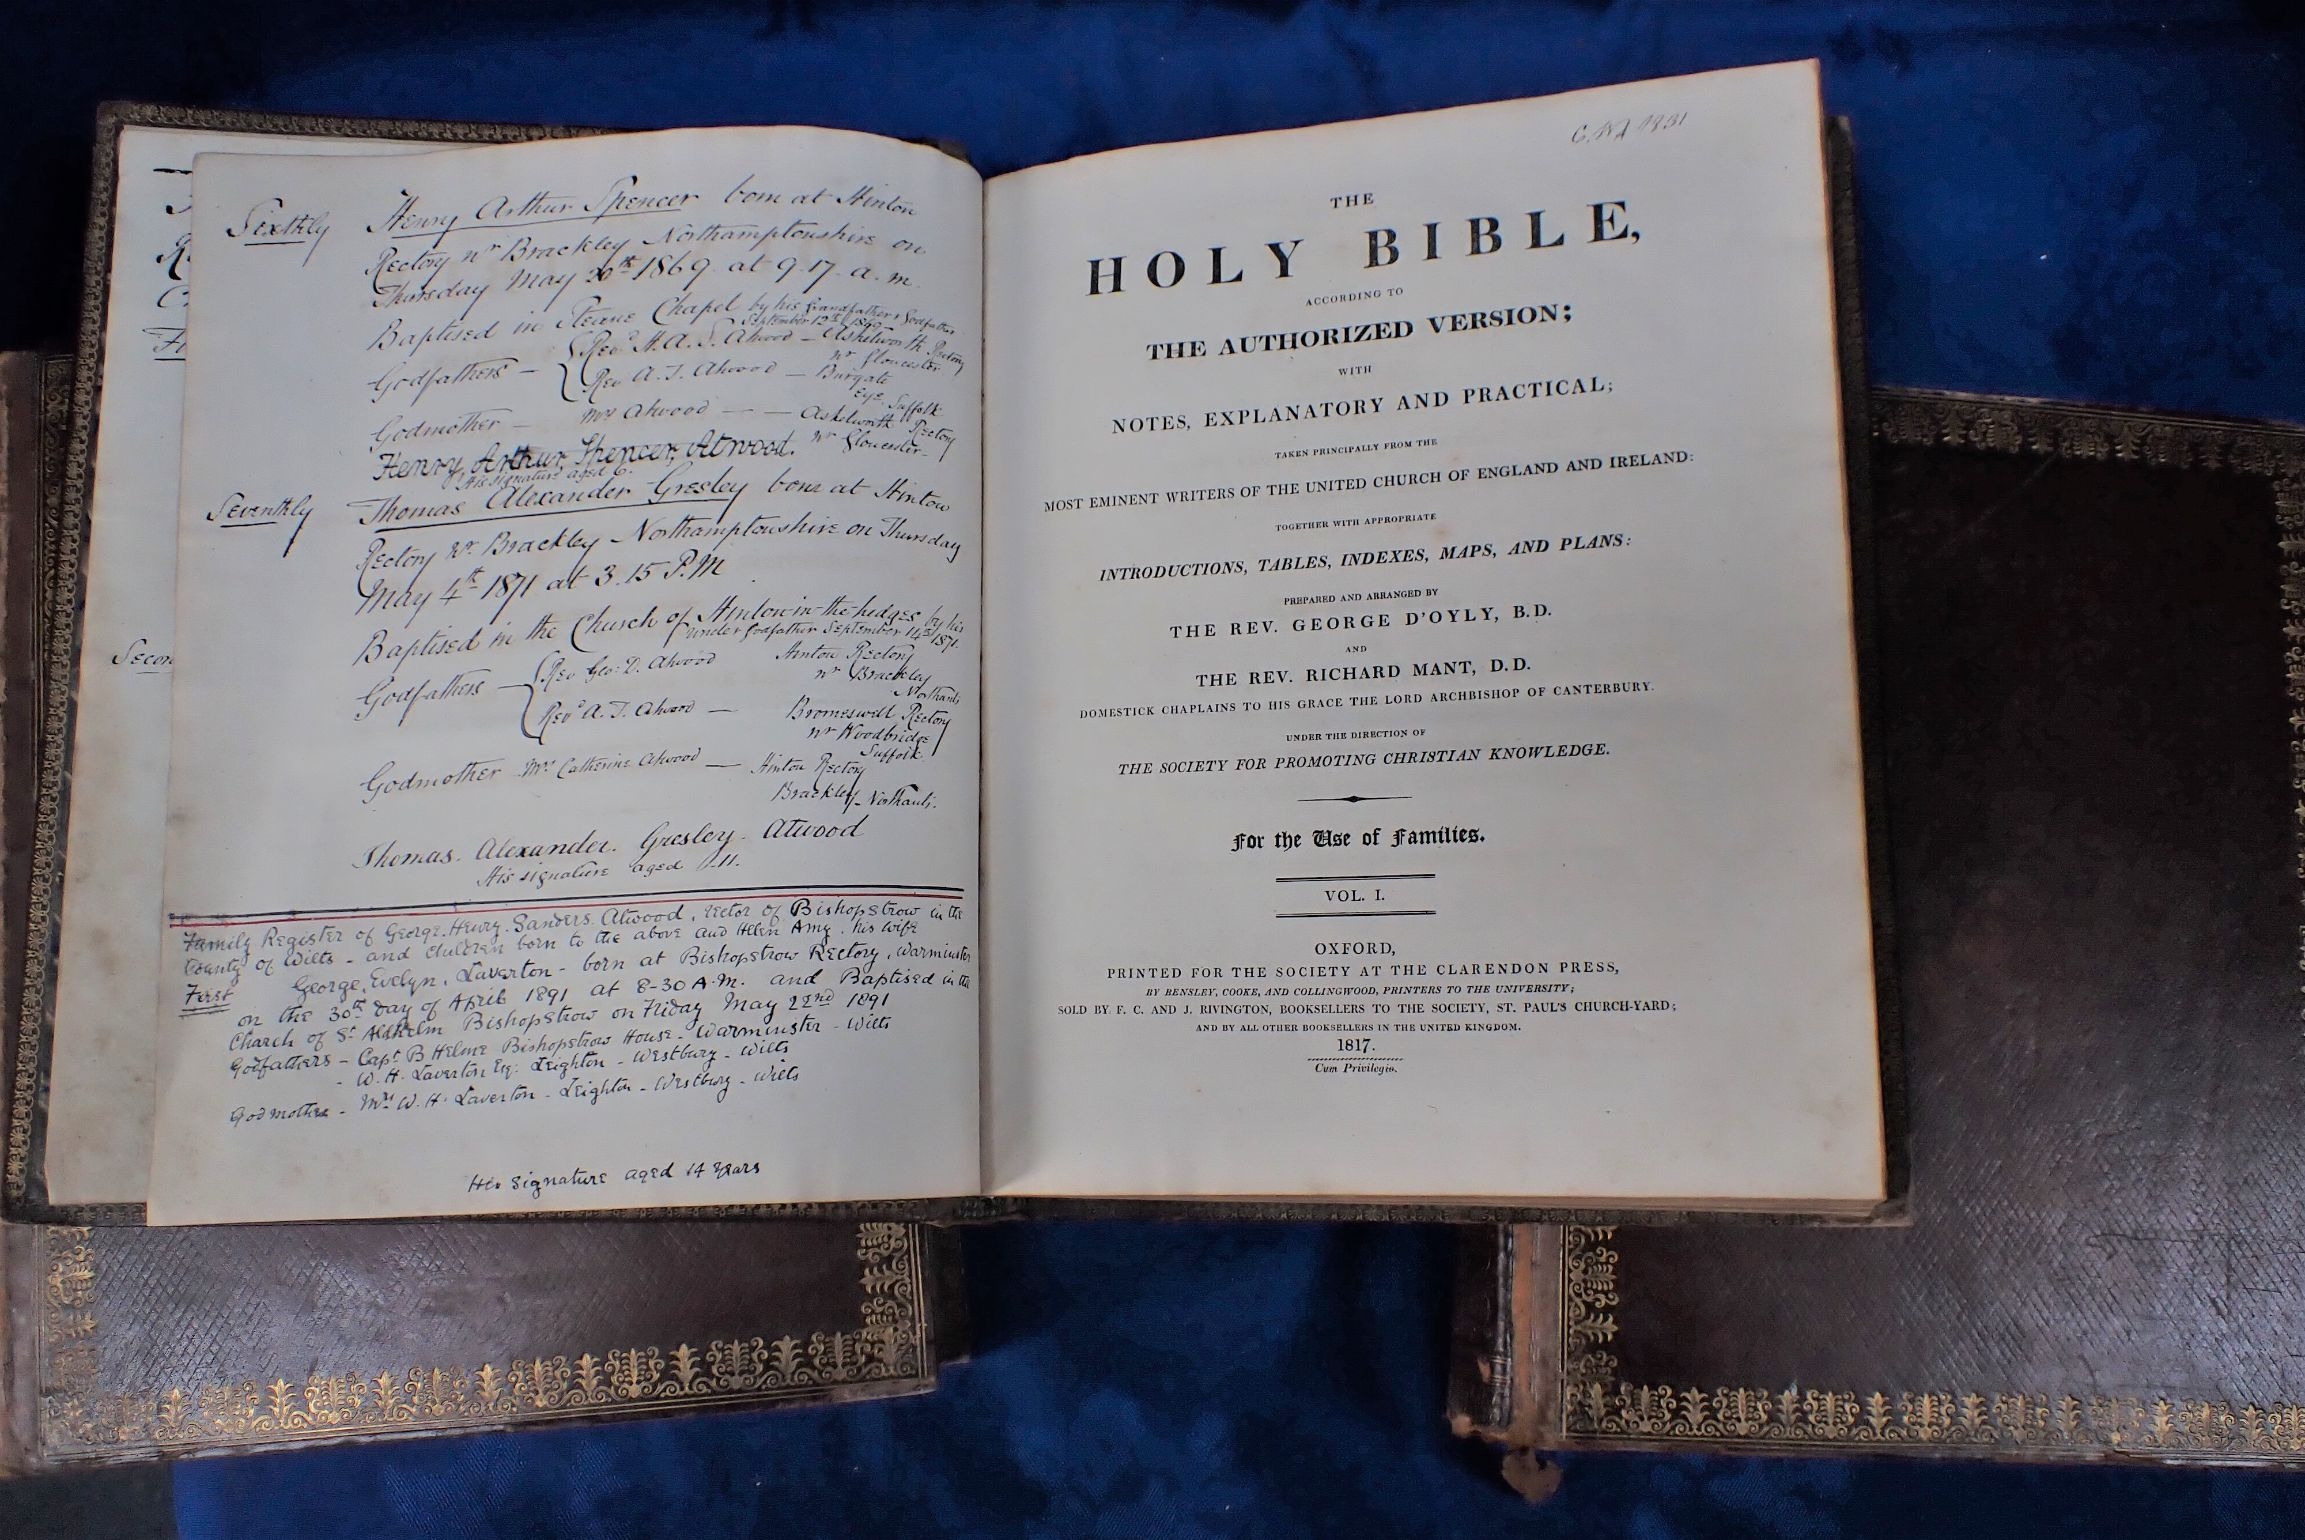 Sixthly Henry Arthur Spencer born at Hinton
Rectory nr Brackley Northamptonshire on
Thursday May 20th 1869. at 9.17. a.m.
Baptised in Steane Chapel by his Grandfather & Godfather
September 12th 1869
Godfathers — Revd H. A. S. Atwood — Ashelworth Rectory
nr Gloucester
Rev A. T. Atwood — Burgate
Eye Suffolk
Godmother — Mrs Atwood — — Ashelworth Rectory
nr Gloucester
Henry, Arthur, Spencer, Atwood.
His signature aged 6.
Seventhly Thomas Alexander Gresley born at Hinton
Rectory Nr Brackley Northamptonshire on Thursday
May 4th 1871 at 3.15 P.M
Baptised in the Church of Hinton-in-the-hedges by his
under Godfather September 14th 1871.
Godfathers — Rev Geo: D. Atwood Hinton Rectory
nr Brackley
Northants
Revd A. T. Atwood — Bromeswell Rectory
nr Woodbridge
Suffolk
Godmother Mrs Catherine Atwood — Hinton Rectory
Brackley Northants.
Thomas. Alexander. Gresley. Atwood
His signature aged 11.
Family Register of George. Henry. Sanders. Atwood, rector of Bishopstrow in the
County of Wilts - and children born to the above and Helen Amy. his wife
First George, Evelyn, Laverton - born at Bishopstrow Rectory, Warminster
on the 30th day of April 1891 at 8-30 A.M. and Baptised in the
Church of St Aldhelm Bishopstrow on Friday May 22nd 1891
Godfathers - Capt B Helme Bishopstrow House - Warminster - Wilts
- W. H. Laverton Esq: Leighton - Westbury - Wilts
Godmother - Mrs W. H. Laverton - Leighton - Westbury - Wilts
His signature aged 14 years
Secon
1831
THE
HOLY BIBLE,
ACCORDING TO
THE AUTHORIZED VERSION;
WITH
NOTES, EXPLANATORY AND PRACTICAL;
TAKEN PRINCIPALLY FROM THE
MOST EMINENT WRITERS OF THE UNITED CHURCH OF ENGLAND AND IRELAND:
TOGETHER WITH APPROPRIATE
INTRODUCTIONS, TABLES, INDEXES, MAPS, AND PLANS:
PREPARED AND ARRANGED BY
THE REV. GEORGE D'OYLY, B.D.
AND
THE REV. RICHARD MANT, D.D.
DOMESTICK CHAPLAINS TO HIS GRACE THE LORD ARCHBISHOP OF CANTERBURY.
UNDER THE DIRECTION OF
THE SOCIETY FOR PROMOTING CHRISTIAN KNOWLEDGE.
For the Use of Families.
VOL. I.
OXFORD,
PRINTED FOR THE SOCIETY AT THE CLARENDON PRESS,
BY BENSLEY, COOKE, AND COLLINGWOOD, PRINTERS TO THE UNIVERSITY;
SOLD BY F. C. AND J. RIVINGTON, BOOKSELLERS TO THE SOCIETY, ST. PAUL'S CHURCH-YARD;
AND BY ALL OTHER BOOKSELLERS IN THE UNITED KINGDOM.
1817.
Cum Privilegio.